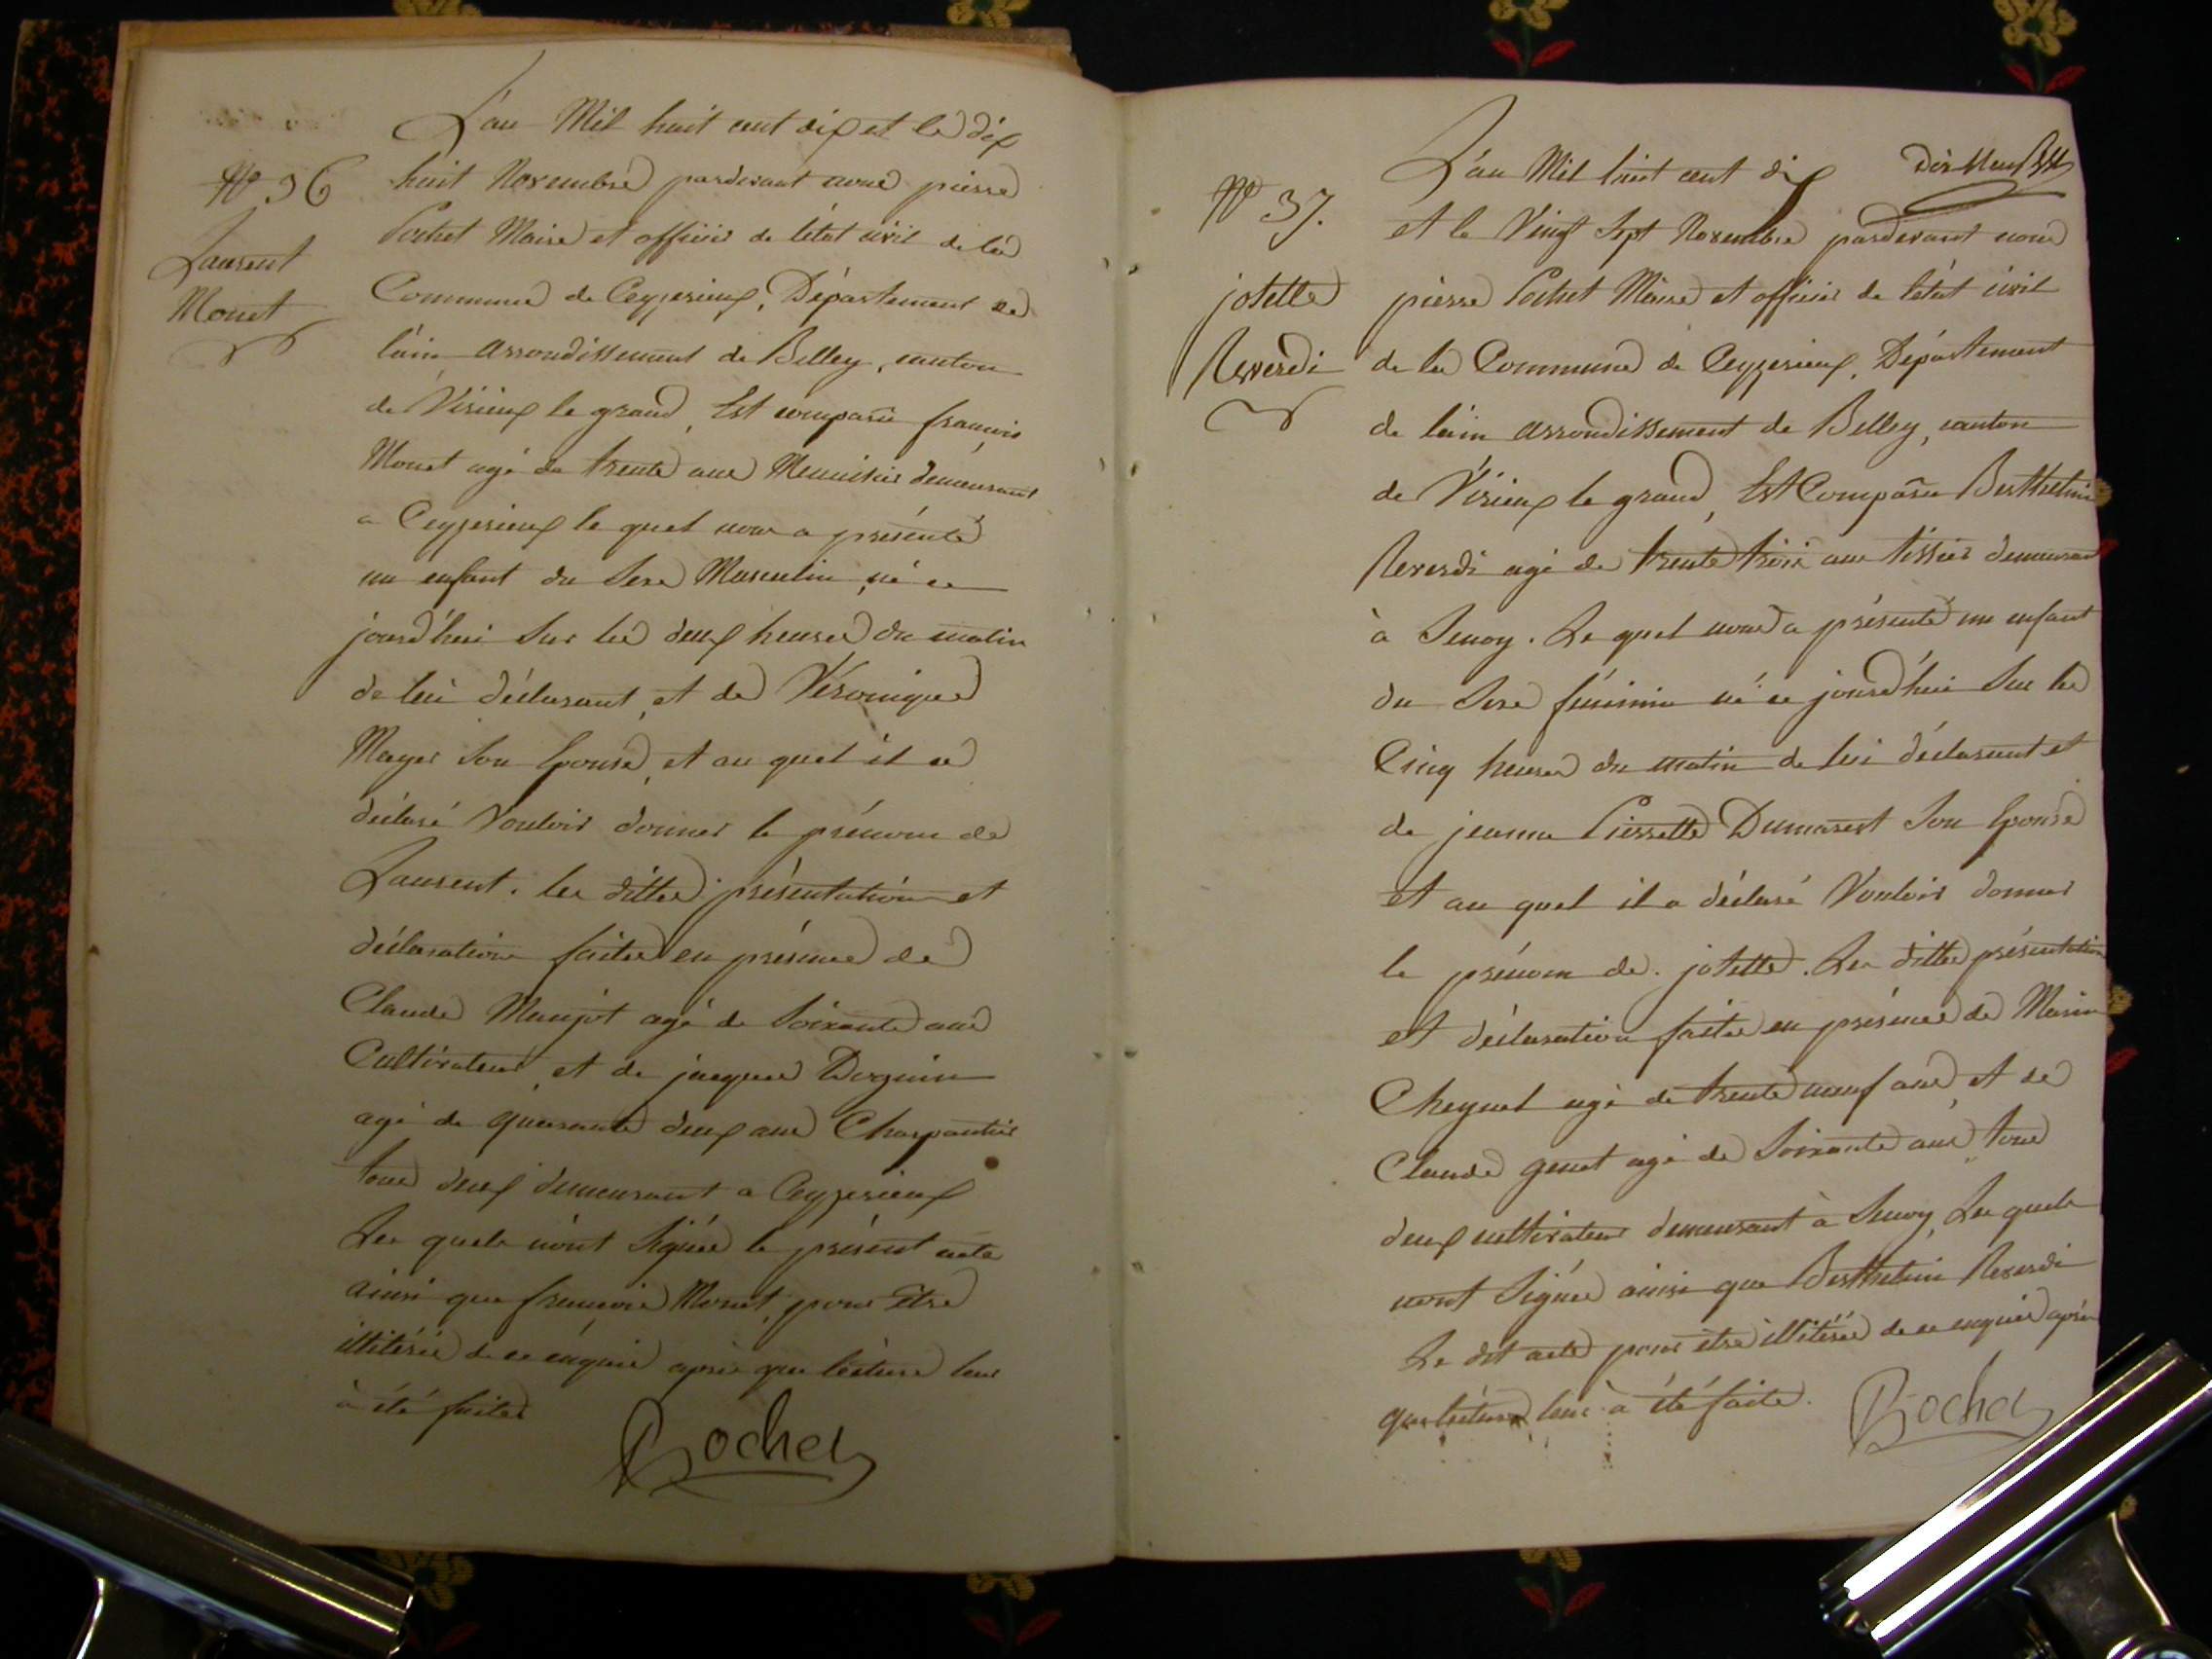 L'an Mil huit cent dix et le dix
N° 36
huit Novembre pardevant nous pierre
Pochet Maire et officier de l'état civil de la
Laurent
Monet
Commune de Ceyzerieux, Département de
l'ain arrondissement de Belley, canton
de Virieux le grand, Est comparu françois
Monet agé de trente ans Menuisier demeurant
a Ceyzerieux le quel nous a présenté
un enfant du Sexe Masculin, né ce
jourd'hui Sur les deux heures du matin
de lui déclarant, et de Véronique
Mayer Son Epouse, et au quel il a
déclaré Vouloir donner le prénom de
Laurent. les dittes présentation et
déclaration faites en présence de
Claude Manjot agé de Soixante ans
Cultivateur, et de jacques Derguin
agé de quarante deux ans Charpantier
tous deux demeurant a Ceyzerieux
Les quels n'ont Signés le présent acte
ainsi que françois Monet, pour être
illitérés de ce enquis après que lecture leur
à été faites
Pochet
L'an Mil huit cent dix
Dix Neuf
N° 37.
et le Vingt Sept Novembre pardevant nous
josette
Reverdi
pierre Pochet Maire et officier de l'état civil
de la Commune de Ceyzerieux, Département
de l'ain arrondissement de Belley, canton
de Virieux le grand, Est Comparu Berthelmi
Reverdi agé de trente trois ans tissier demeurant
à Senoy. Le quel nous a présenté un enfant
du Sexe féminin né ce jourd'hui Sur les
Cinq heures du matin de lui déclarant et
de jeanne Pierrette Dumarest Son Epouse
et au quel il a déclaré Vouloir donner
le prénom de josette. Les dittes présentation
et déclaration faites en présence de Marin
Cheynel agé de trente neuf ans, et de
Claude genet agé de Soixante ans tous
deux cultivateur demeurant à Senoy, Les quels
n'ont Signés ainsi que Berthelmi Reverdi
Le dit acte pour être illitérés de ce enquis après
que lecture leur à été faite.
Pochet